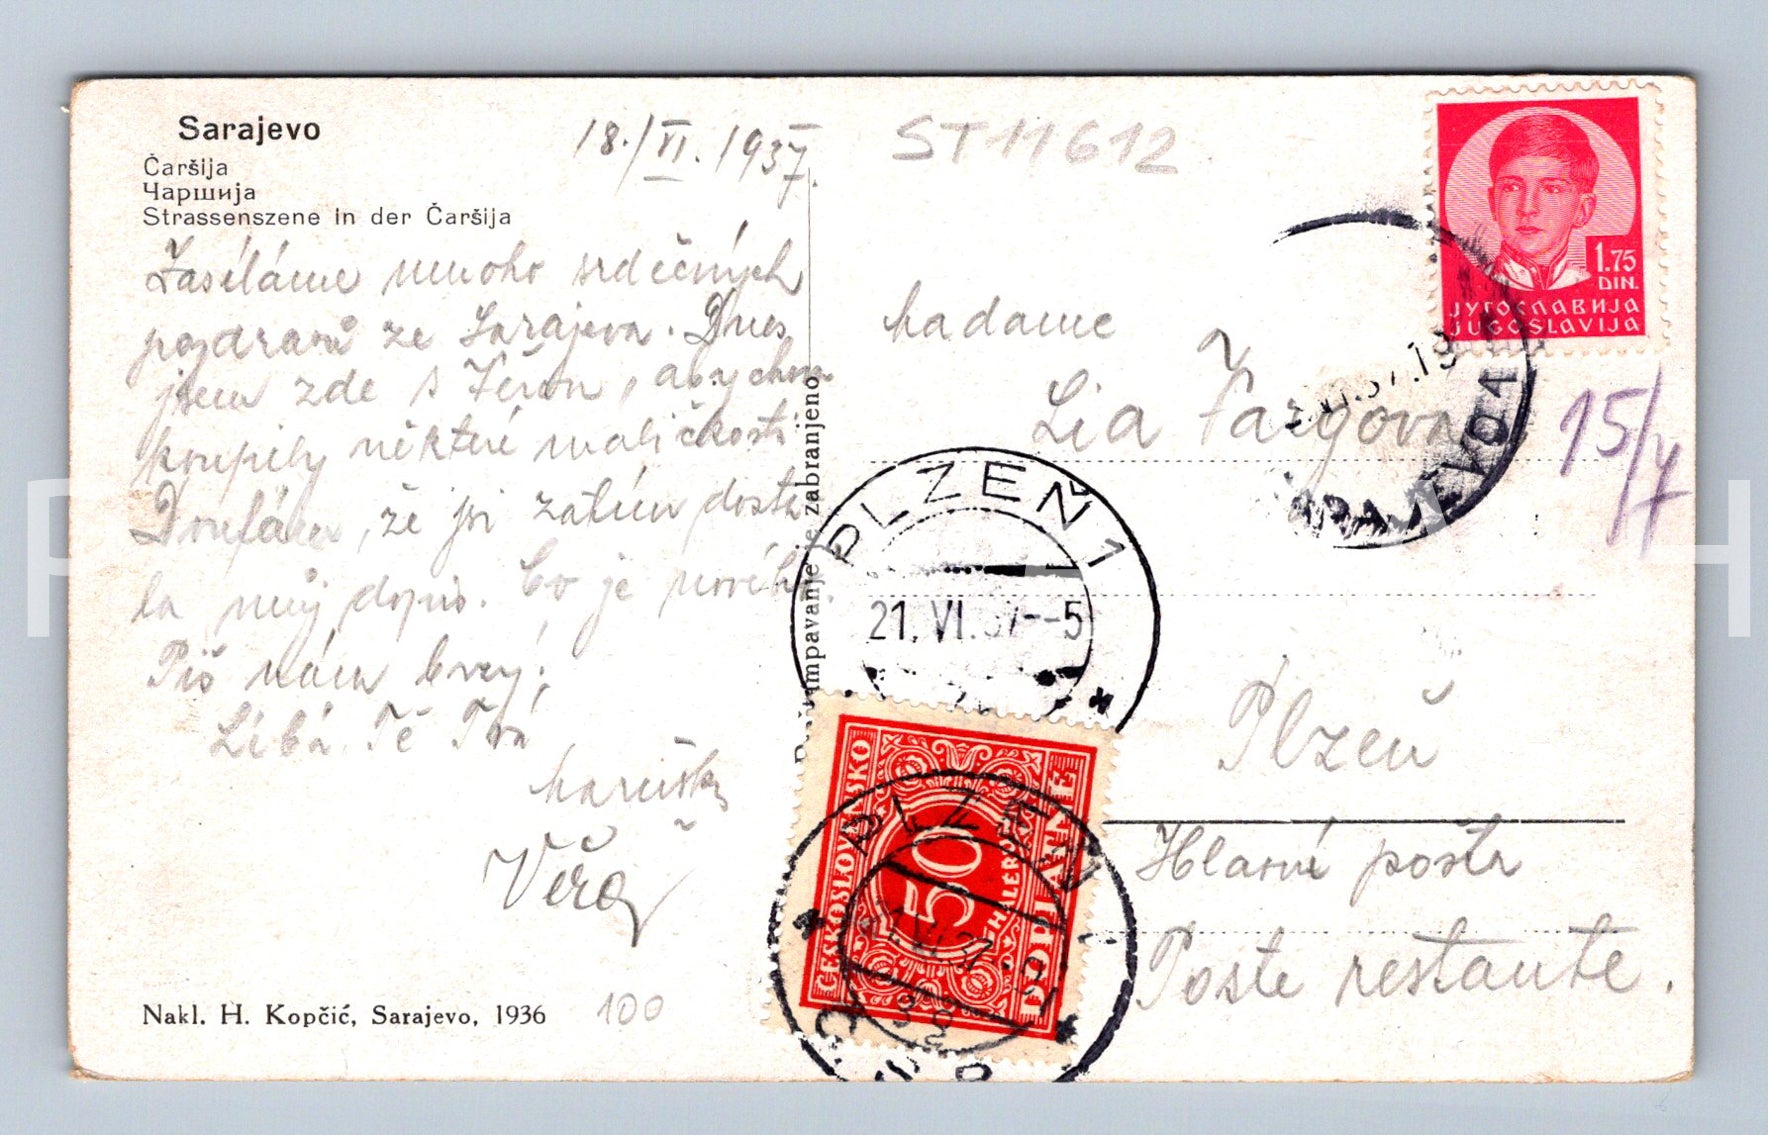 Sarajevo
Čaršija
Чаршија
Strassenszene in der Čaršija
18./VI. 1937.
ST11612
Zasíláme mnoho srdečných
pozdravů ze Sarajeva. Dnes
jsem zde s Věrou, abychom
koupily některé maličkosti
Doufám, že jsi zatím dosta
la můj dopis. Co je nového.
Piš nám brzy!
Líbá Tě Tvá
Maruška
Věra
Nakl. H. Kopčić, Sarajevo, 1936
100
Preštampavanje je zabranjeno
1.75
DIN.
ЈУГОСЛАВИЈА
JUGOSLAVIJA
SARAJEVO
15/
Madame
Lia
PLZEŇ 1
21. VI. 37--5
Plzeň
Hlavní pošta
Poste restante.
ČESKOSLOVENSKO
50
HALÉŘŮ
DOPLATNÉ
PLZEŇ